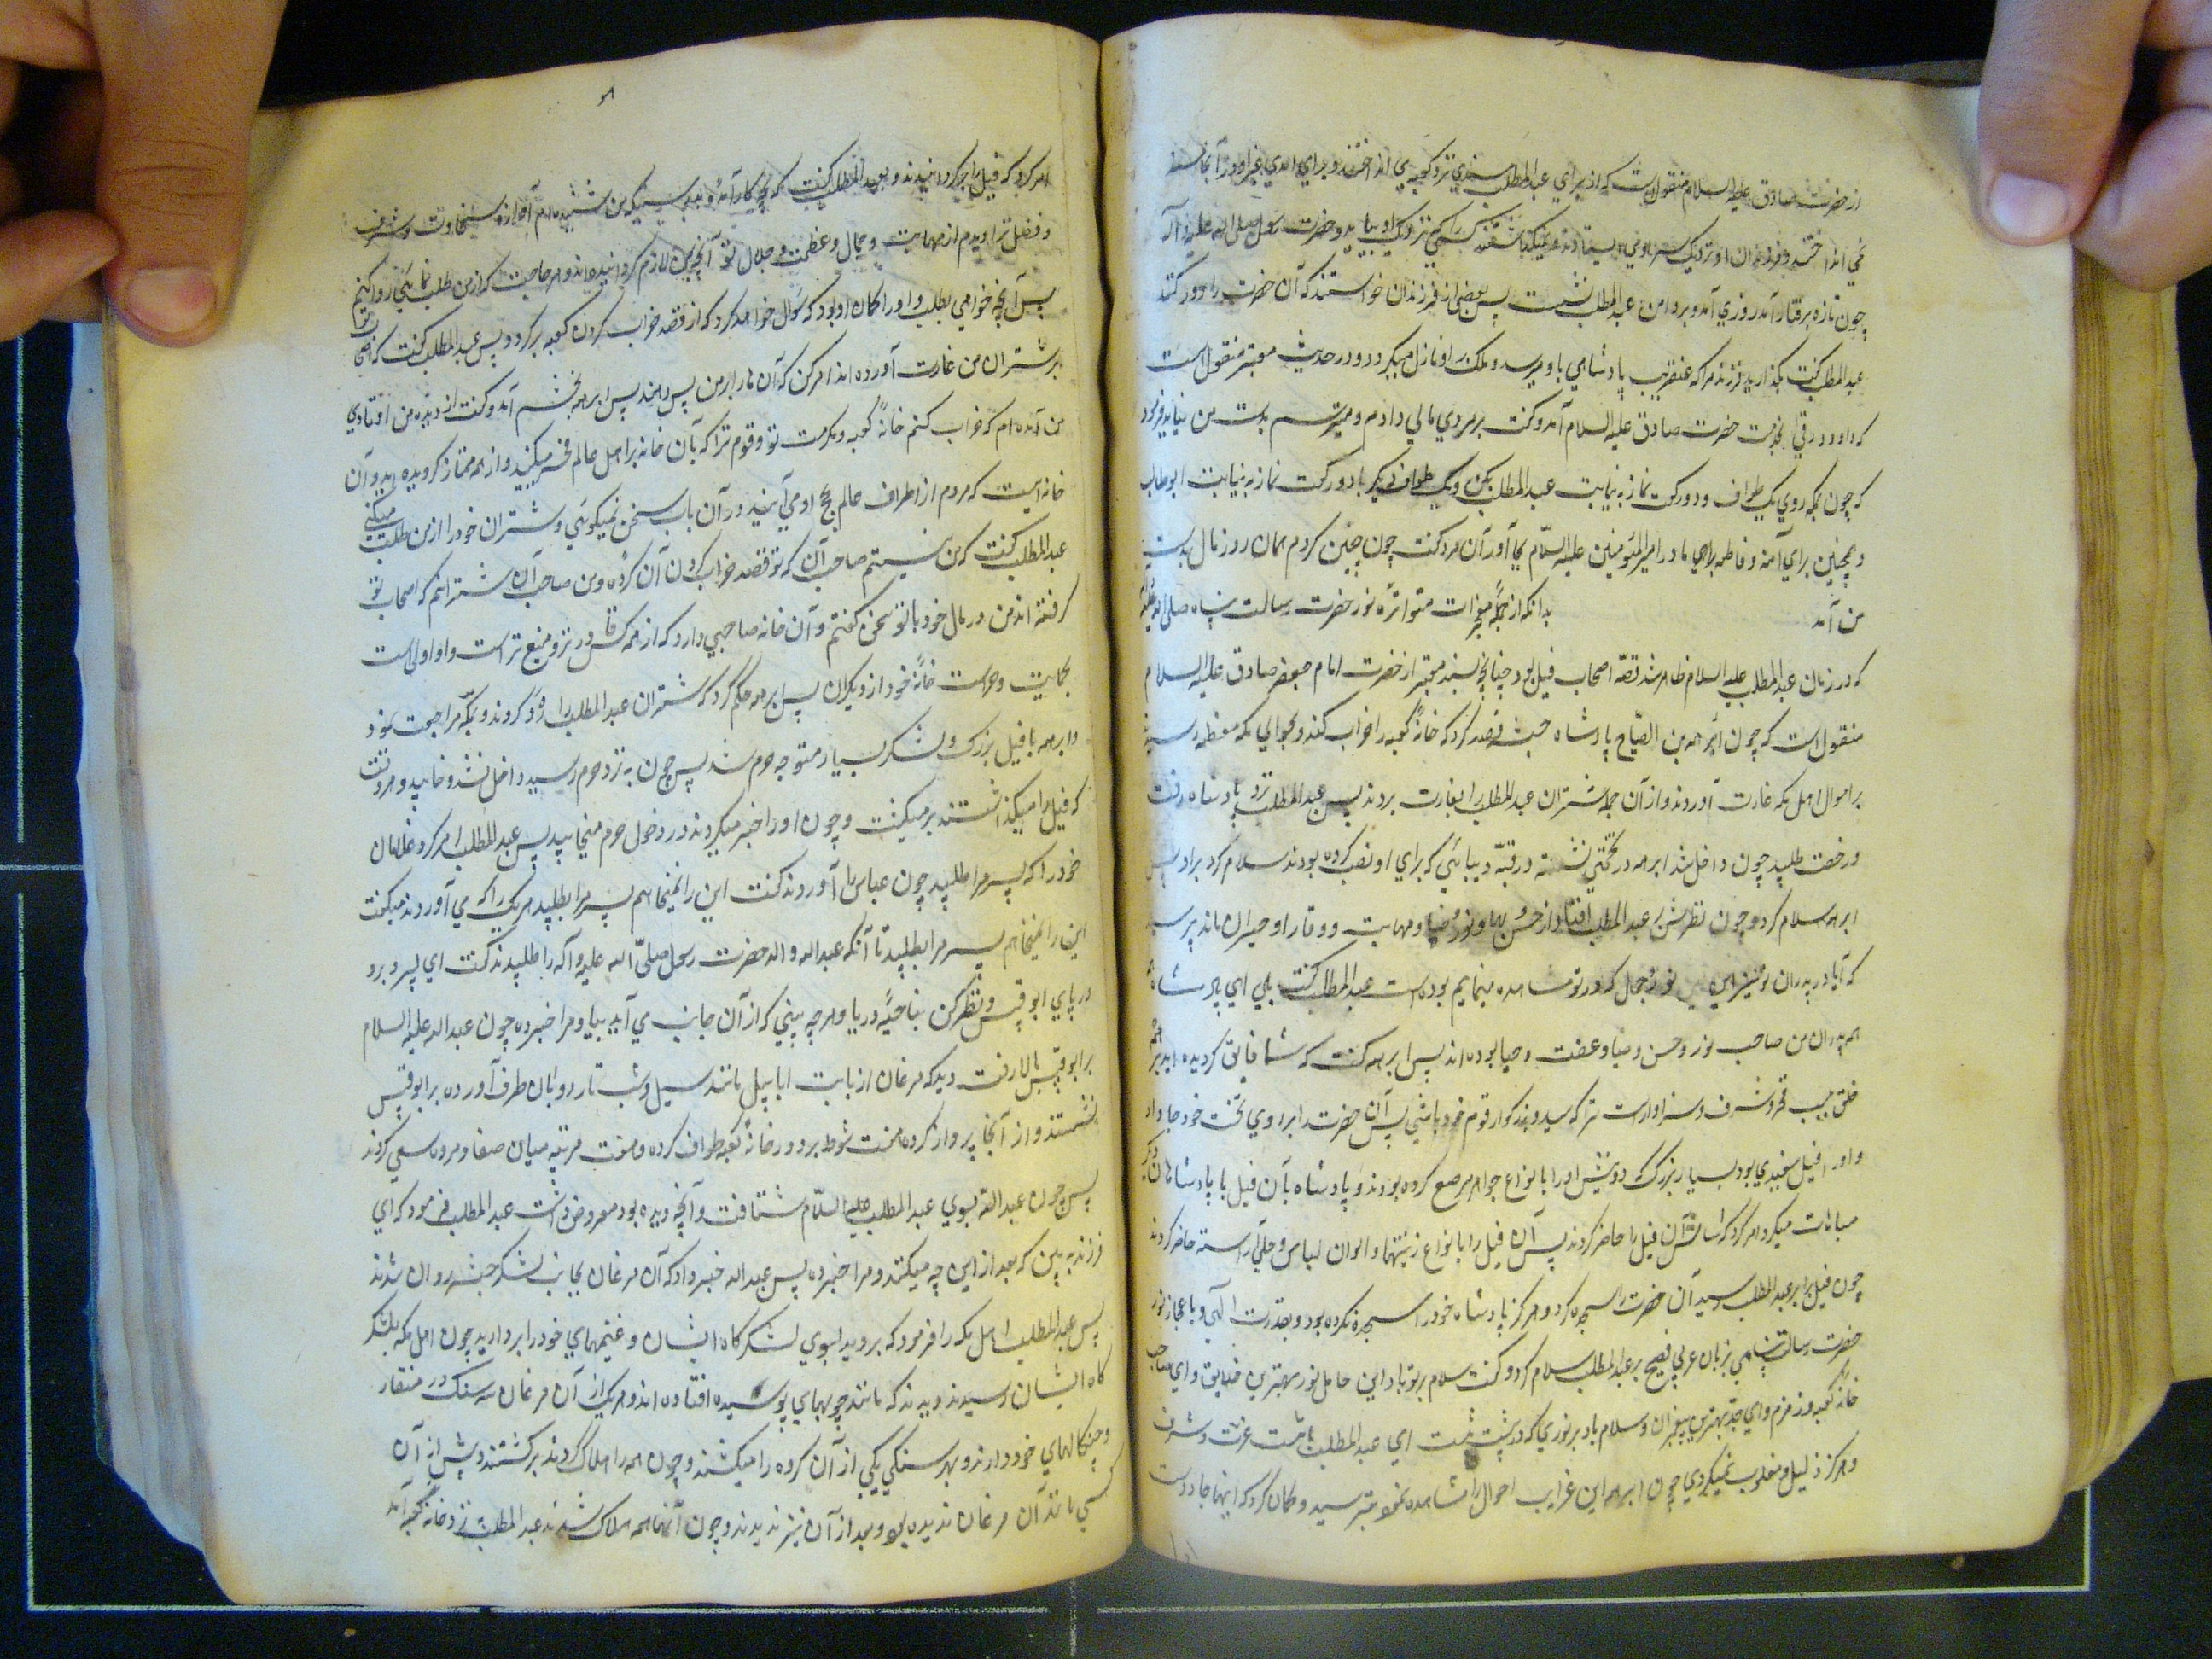 از حضرت صادق علیه السلام منقول است که از برای عبد المطلب مسندی نزد کعبه می انداختند و برای احدی بغیر او در آنجا مسند
نمی انداختند و فرزندان او نزدیک سر او می ایستادند و نمیگذاشتند کسی را که نزدیک او بیاید و حضرت رسول صلی الله علیه و آله
چون تازه برفتار آمد روزی آمد و بر دامن عبد المطلب نشست پس بعضی از فرزندان خواستند که آن حضرت را دور کنند
عبد المطلب گفت بگذارید فرزند مرا که عنقریب پادشاهی باو میرسد و ملک بر او نازل میگردد و در حدیث معتبر منقول است
که داود رقی بخدمت حضرت صادق علیه السلام آمد و گفت بر مردی مالی دادم و میترسم بدست من نیاید فرمود
که چون بمکه روی یک طواف و دو رکعت نماز به نیابت عبد المطلب بکن و یک طواف دیگر با دو رکعت نماز به نیابت ابو طالب
و همچنین برای آمنه و فاطمه برای مادر امیر المؤمنین علیه السلام بجا آور آن مرد گفت چون چنین کردم همان روز مال بدست
من آمد بدانکه از جمله معجزات متواتره نور حضرت رسالت پناه صلی الله علیه
که در زمان عبد المطلب علیه السلام ظاهر شد قصه اصحاب فیل بود چنانچه بسند معتبر از حضرت امام جعفر صادق علیه السلام
منقول است که چون ابرهه بن الصباح پادشاه حبشه قصد کرد که خانه کعبه را خراب کند و بحوالی مکه معظمه رسید
بر اموال اهل مکه غارت آوردند و از آن جمله شتران عبد المطلب را بغارت بردند پس عبد المطلب نزد پادشاه رفت
و رخصت طلبید چون داخل شد ابرهه در تختی نشسته در قبه دیبائی که برای او نصب کرده بودند سلام کرد بر او پس
ابرهه سلام کرد و چون نظرش بر عبد المطلب افتاد از حسن و بها و نور و ضیا و مهابت و وقار او حیران ماند پرسید
که آیا در پدران تو نیز این نور و جمال که در تو مشاهده مینمایم بوده است عبد المطلب گفت بلی ای پادشاه
همه پدران من صاحب نور و حسن و ضیا و عفت و حیا بوده اند پس ابرهه گفت که شما فایق گردیده اید بر همه
خلق بسبب فخر و شرف و سزاوار است ترا که سید و بزرگوار قوم خود باشی پس آن حضرت را بر روی تخت خود جا داد
و او را فیل سفیدی بود بسیار بزرگ که دو نیش او را با نواع جواهر مرصع کرده بودند و پادشاه بآن فیل با پادشاهان دیگر
مباهات میکرد امر کرد که آن فیل را حاضر کردند پس آن فیل را بانواع زینتها و الوان لباس و حلی آراسته حاضر کردند
چون فیل برابر عبد المطلب رسید آن حضرت را سجده کرد و هرگز پادشاه خود را سجده نکرده بود و بقدرت الهی و باعجاز نور
حضرت رسالت پناهی بزبان عربی فصیح بر عبد المطلب سلام کرد و گفت سلام بر تو باد این حامل نور بهترین خلایق و ای صاحب
خانه کعبه و زمزم و ای جد بهترین پیغمبران و سلام باد بر نوری که در پشت تست ای عبد المطلب با تست عزت و شرف
و هرگز ذلیل و مغلوب نمیگردی چون ابرهه این غرایب احوال را مشاهده نمود بترسید و گمان کرد که اینها جادوست
امر کرد که فیل را برگردانیدند و بعبد المطلب گفت که بچه کار آمده بدرستیکه من شنیده ام آوازه سخاوت و شرف
و فضل ترا و دیدم از مهابت و جمال و عظمت و جلال تو آنچه بر من لازم گردانیده اند و هر حاجت که از من طلب نمائی روا کنم
پس آنچه خواهی بطلب و او را گمان او بود که سؤال خواهد کرد که از قصد خراب کردن کعبه برگردد پس عبد المطلب گفت که اصحاب تو
بر شتران من غارت آورده اند امر کن که آن ها را بر من پس دهند پس ابرهه بخشم آمد و گفت از دیده من افتادی
من آمده ام که خراب کنم خانه کعبه و مکرمت تو و قوم ترا که بآن خانه بر اهل عالم فخر میکنید و از همه ممتاز گردیده اید و آن
خانه ایست که مردم از اطراف عالم بحج او می آیند و در آن باب سخن نمیگوئی و شتران خود را از من طلب میکنی
عبد المطلب گفت که من نیستم صاحب آن که تو قصد خراب کردن آن کرده و من صاحب آن شترانم که اصحاب تو
گرفته اند من در مال خود با تو سخن گفتم و آن خانه صاحبی دارد که از همه کس قادر تر و منیع تر است و او اولی است
بحمایت و حراست خانه خود از دیگران پس ابرهه حکم کرد که شتران عبد المطلب را رد کردند و بمکه مراجعت نمود
و ابرهه با فیل بزرگ و لشکر بسیار متوجه حرم شد پس چون به نزد حرم رسید داخل نشد و خوابید و هر وقت
که فیل را میگذاشتند برمیگشت و چون او را جبر میکردند در دخول حرم میخوابید پس عبد المطلب امر کرد غلامان
خود را که پسر مرا طلبید چون عباس را آوردند گفت این را نمیخواهم پسر مرا بطلبید هر یک را که می آوردند میگفت
این را نمیخواهم پسر مرا بطلبید تا آنکه عبد الله والد حضرت رسول صلی الله علیه و آله را طلبیدند گفت ای پسر برو
در پای ابو قبیس و نظر کن بناحیه دریا و هر چه بینی که از آن جانب می آید بیا و مرا خبر ده چون عبد الله علیه السلام
بر ابو قبیس بالا رفت دید که مرغان از بابت ابابیل مانند سیل و شب تار رو بآن طرف آورده بر ابو قبیس
نشستند و از آنجا پرواز کرده هفت شوط بر دور خانه کعبه طواف کرده و هفت مرتبه میان صفا و مروه سعی کردند
پس چون عبد الله بسوی عبد المطلب علیه السلام شتافت و آنچه دیده بود معروض داشت عبد المطلب فرمود که ای
فرزند به بین که بعد از این چه میکنند و مرا خبر ده پس عبد الله خبر داد که آن مرغان بجانب لشکر حبشه روان شدند
پس عبد المطلب اهل مکه را فرمود که بروید بسوی لشکر گاه ایشان و غنیمهای خود را بردارید چون اهل مکه بلشکر
گاه ایشان رسیدند دیدند که مانند چوبهای پوسیده افتاده اند و هر یک از آن مرغان سه سنگ در منقار
و چنگالهای خود دارند و بهر سنگی یکی از آن گروه را میکشند و چون همه را هلاک کردند برگشتند و پیش از آن
کسی مانند آن مرغان ندیده بود و بعد از آن نیز ندیدند و چون آنها همه هلاک شدند عبد المطلب نزد خانه کعبه آمد